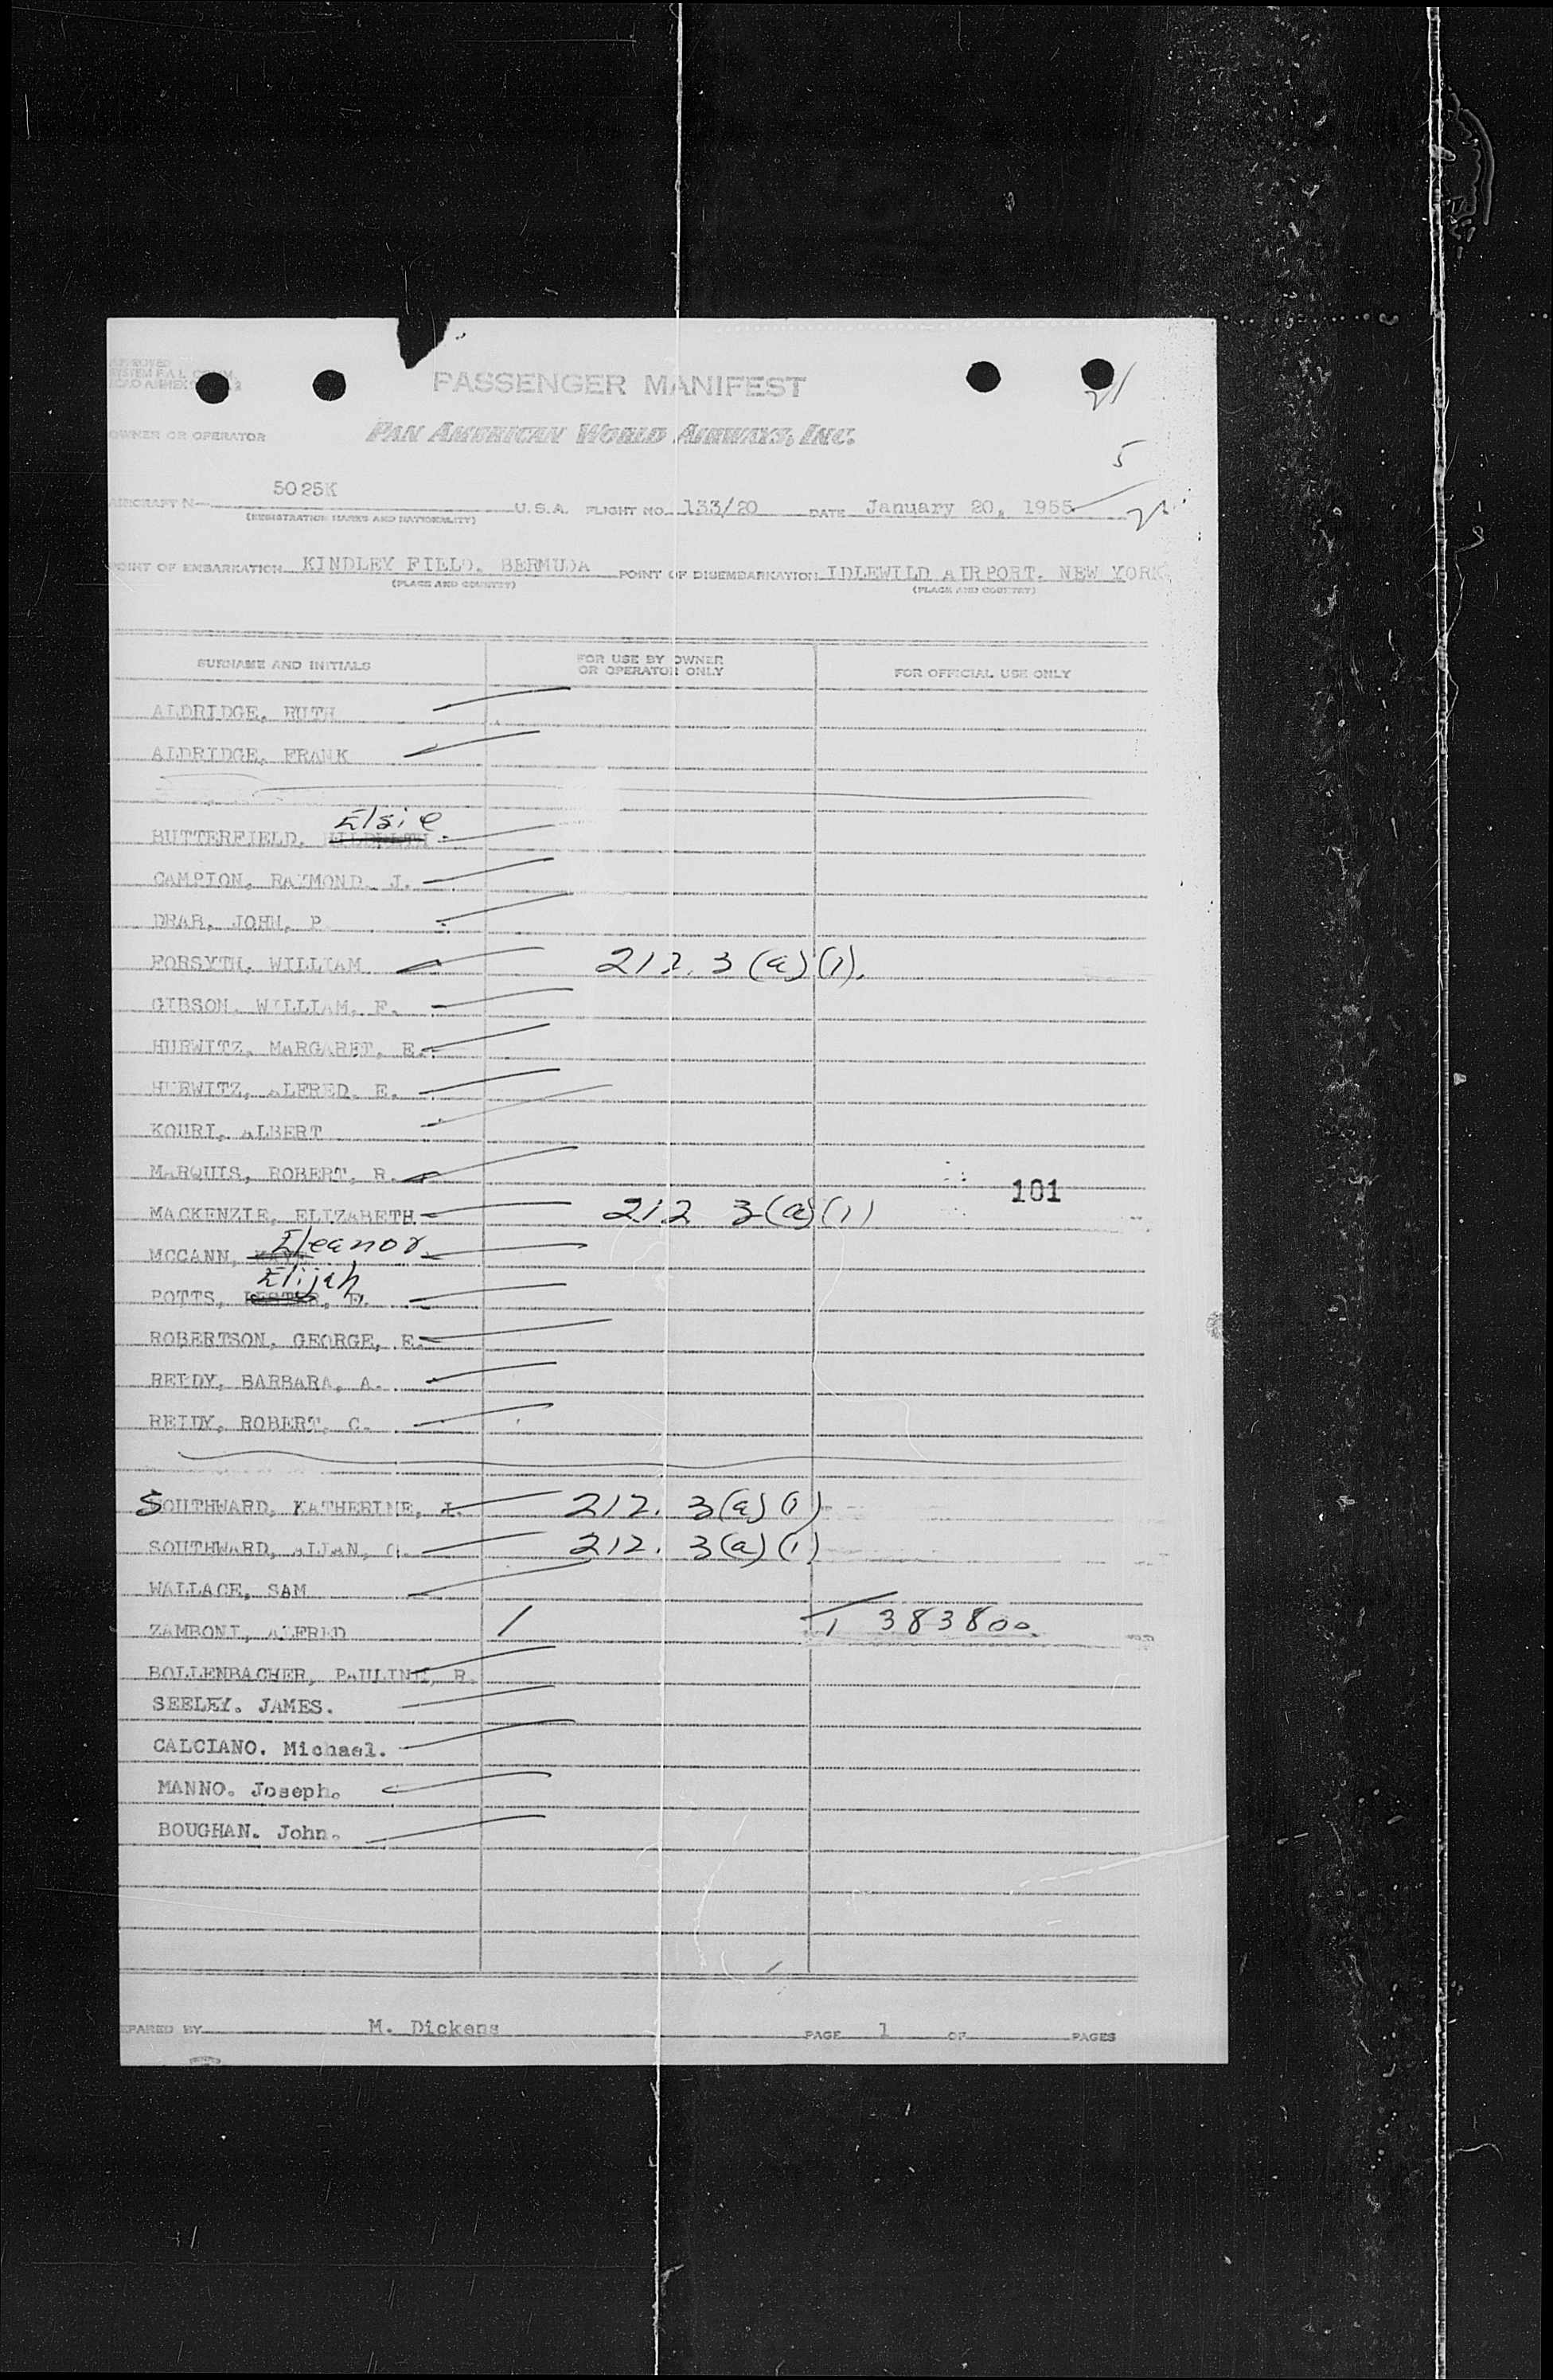 APPROVED
SYSTEM F.A.L. COMM.
ICAO ANNEX 2
PASSENGER MANIFEST
21
OWNER OR OPERATOR PAN AMERICAN WORLD AIRWAYS, INC.
5
AIRCRAFT N- 5025K U.S.A. FLIGHT NO. 133/20 DATE January 20, 1955 21
(REGISTRATION MARKS AND NATIONALITY)
POINT OF EMBARKATION KINDLEY FIELD. BERMUDA POINT OF DISEMBARKATION IDLEWILD AIRPORT. NEW YORK
(PLACE AND COUNTRY) (PLACE AND COUNTRY)
SURNAME AND INITIALS FOR USE BY OWNER OR OPERATOR ONLY FOR OFFICIAL USE ONLY
ALDRIDGE, RUTH
ALDRIDGE, FRANK
Elsie
BUTTERFIELD, HILDRETH
CAMPION, RAYMOND, J.
DRAB, JOHN, P.
FORSYTH, WILLIAM 212.3(a)(1).
GIBSON, WILLIAM, F.
HURWITZ, MARGARET, E.
HURWITZ, ALFRED, E.
KOURI, ALBERT
MARQUIS, ROBERT, R.
101
MACKENZIE, ELIZABETH 212 3(a)(1)
Eleanor
MCCANN,
Elijah
POTTS, LESTER, E.
ROBERTSON, GEORGE, E.
REIDY, BARBARA, A.
REIDY, ROBERT, C.
SOUTHWARD, KATHERINE, I. 212. 3(a)(1)
SOUTHWARD, ALLAN, G. 212. 3(a)(1)
WALLACE, SAM
ZAMBONI, ALFRED / 1 383800.
BOLLENBACHER, PAULINE, R.
SEELEY. JAMES.
CALCIANO. Michael.
MANNO. Joseph.
BOUGHAN. John.
PREPARED BY M. Dickens PAGE 1 OF PAGES